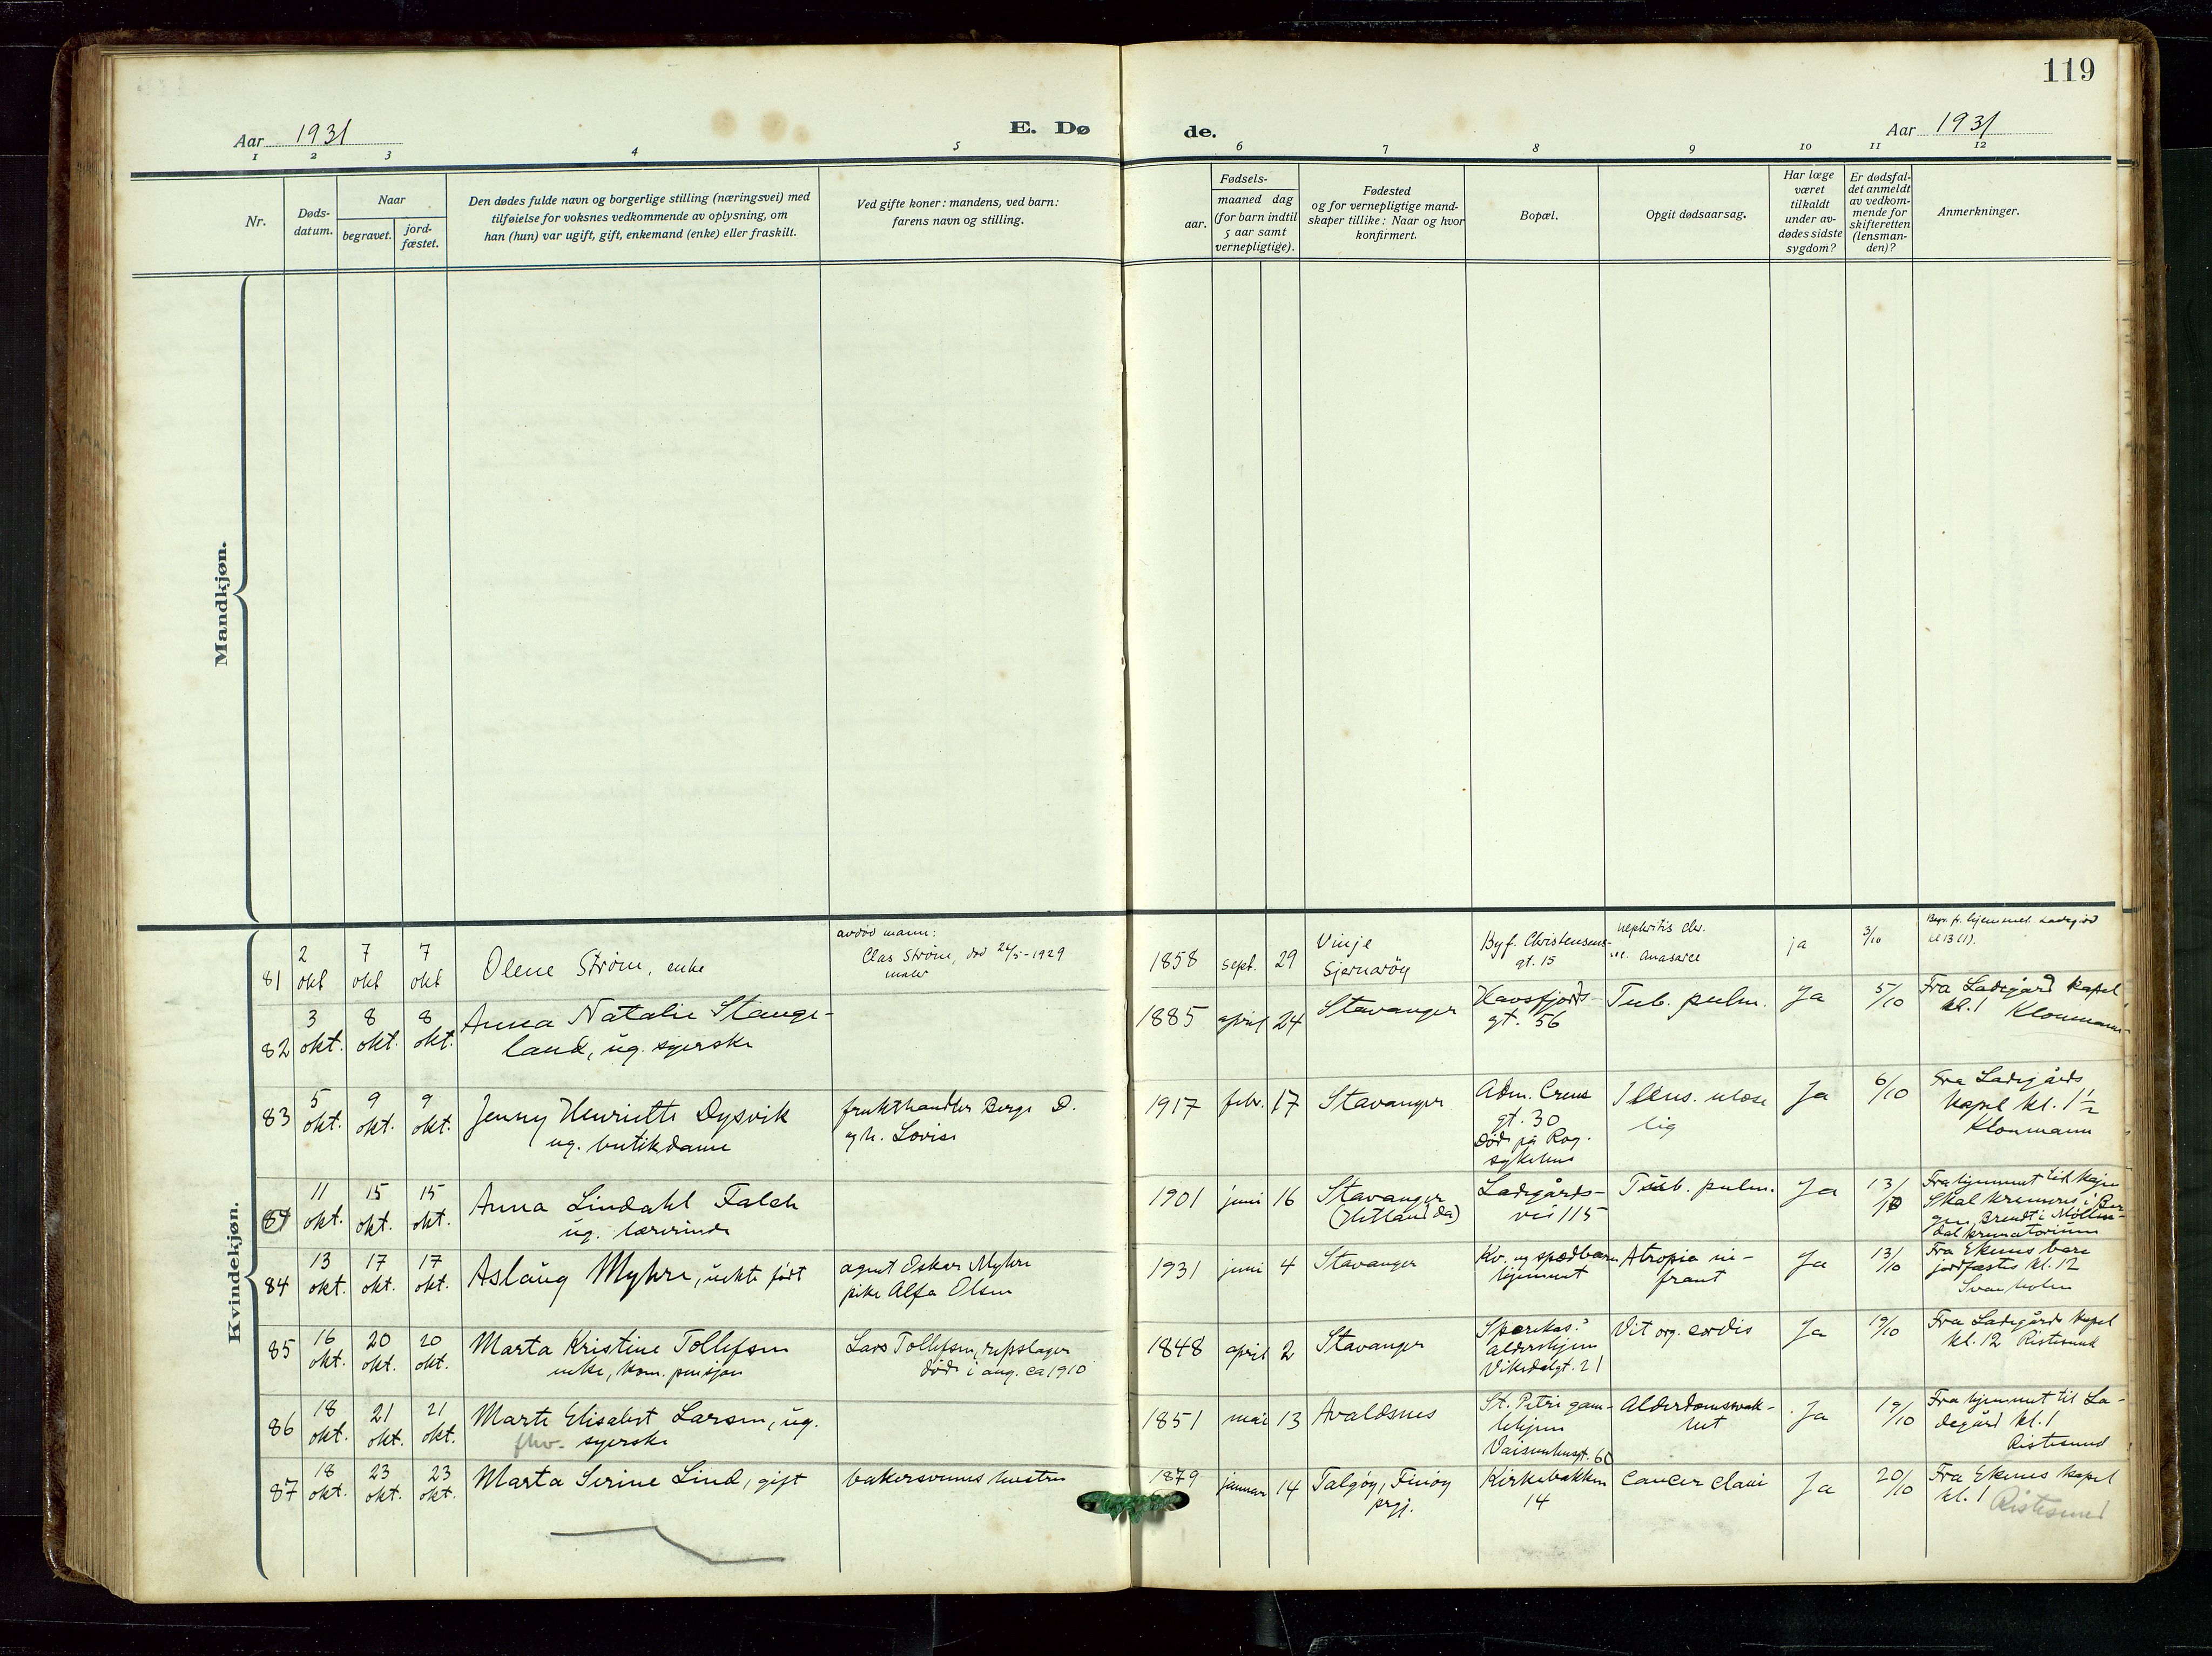 119
Aar 1931
E. Dø
de.
Aar 1931
1 2 3 4 5 6 7 8 9 10 11 12
Nr.
Døds-
datum.
Naar
begravet.
jord-
fæstet.
Den dødes fulde navn og borgerlige stilling (næringsvei) med
tilføielse for voksnes vedkommende av oplysning, om
han (hun) var ugift, gift, enkemand (enke) eller fraskilt.
Ved gifte koner: mandens, ved barn:
farens navn og stilling.
Fødsels-
aar.
maaned dag
(for barn indtil
5 aar samt
vernepligtige).
Fødested
og for vernepligtige mand-
skaper tillike: Naar og hvor
konfirmert.
Bopæl.
Opgit dødsaarsag.
Har læge
været
tilkaldt
under av-
dødes sidste
sygdom?
Er dødsfal-
det anmeldt
av vedkom-
mende for
skifteretten
(lensman-
den)?
Anmerkninger.
Mandkjøn.
Kvindekjøn.
81
2
okt
7
okt
7
okt
Olene Strøm, enke
avdød mann:
Clas Strøm, død 26/5-1929
maler
1858 sept. 29
Vinje
Sjernarøy
Byf. Christensens-
gt. 15
nephritis chr.
m. anasarce
ja
3/10
Begr. fr. hjemmet. Ladegård
kl 13 (1).
82
3
okt.
8
okt.
8
okt.
Anna Natalie Stange-
land, ug. syerske
1885 april 24
Stavanger
Havsfjords-
gt. 56
Tub. pulm.
Ja
5/10
Fra Ladegård kapel
kl. 1 Klonmann
83
5
okt.
9
okt.
9
okt.
Jenny Henriette Dysvik
ug. butikdame
frukthandler Berge D.
og h. Lovise
1917 febr. 17
Stavanger
Adm. Crus
gt. 30
Død på Rog.
sykehus
Ileus. uløse
lig
Ja
6/10
Fra Ladegårds
kapel kl. 1 1/2
Klonmann
84
11
okt.
15
okt.
15
okt.
Anna Lindahl Falch
ug. lærerinde
1901 juni 16
Stavanger
(Hetland da)
Ladegårds-
vei 115
Tub. pulm.
Ja
13/10
Fra hjemmet til kajen
Skal kremeres i Ber
gen, Brendt i Møllen-
dal krematorium
84
13
okt.
17
okt.
17
okt.
Aslaug Myhre, uekte født
agent Oskar Myhre
pike Alfa Olsen
1931 juni 4
Stavanger
Kv. og spædbarn
hjemmet
Atropia in-
fant
Ja
13/10
Fra Ekenes bare
jordfæstes kl. 12
Svanholm
85
16
okt.
20
okt.
20
okt.
Marta Kristine Tollefsen
enke, kom. pensjon
Lars Tollefsen, repslager
død i aug. ca 1910
1848 april 2
Stavanger
Sparekas.s
aldershjem
Vikedalgt. 21
Vit org. cordis
Ja
19/10
Fra Ladegårds kapel
kl. 12 Ristesund
86
18
okt.
21
okt.
21
okt.
Marte Elisabet Larsen, ug.
fhv. syerske
1851 mai 13
Avaldsnes
St. Petri gam-
lehjem
Vaisenhusgt. 60
Alderdomssvak-
het
Ja
19/10
Fra hjemmet til La-
degård kl. 1
Ristesund
87
18
okt.
23
okt.
23
okt.
Marta Serine Lind, gift
bakersvenns hustru
1879 januar 14
Talgøy, Finnøy
prgj.
Kirkebakken
14
Cancer
Ja
20/10
Fra Ekenes kapel
kl. 1 Ristesund